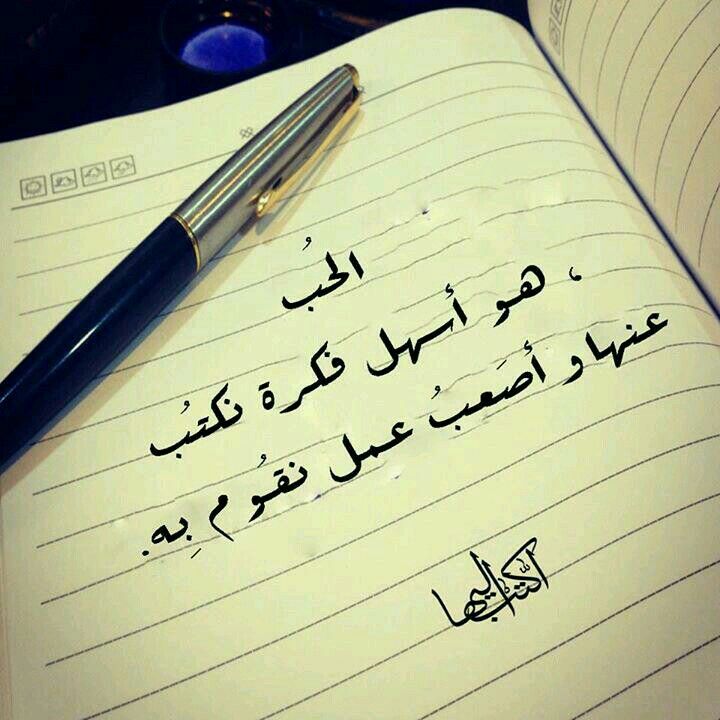 الحُب
، هو أسهل فكرة نكتُب
عنها و أصَعبُ عمل نقُوم بِه.
اكتب إليها